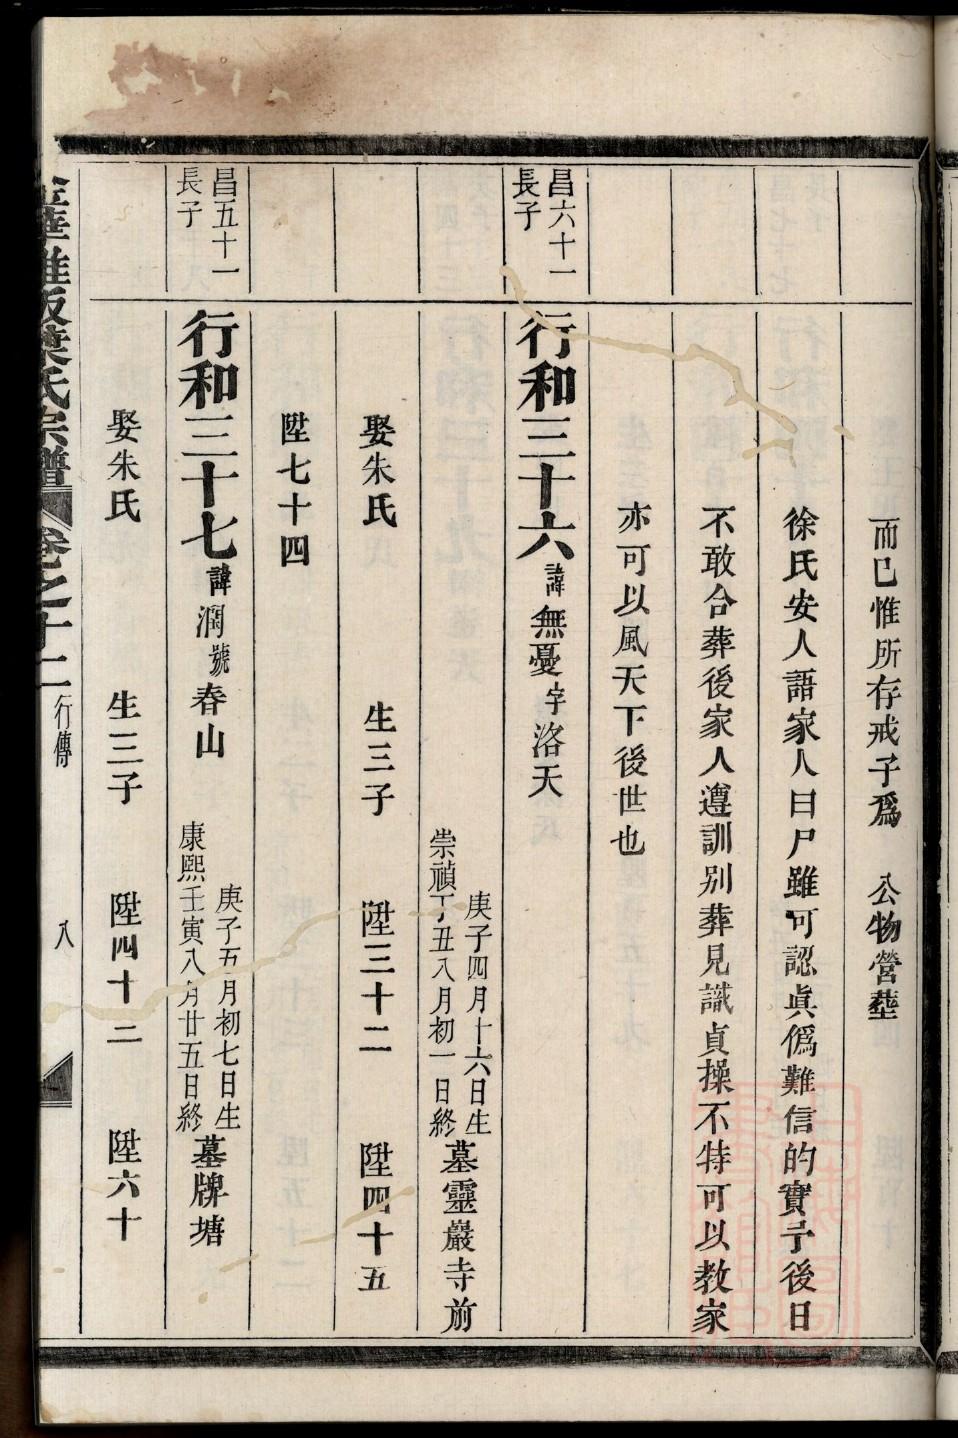 而已惟所存戒子爲　公物營塟
徐氏安人語家人曰尸雖可認眞僞難信的實予後日
不敢合葬後家人遵訓別葬見識貞操不特可以教家
亦可以風天下後世也
昌六十一
長子
行和三十六諱無憂字洛天
庚子四月十六日生
崇禎丁丑八月初一日終
墓靈巖寺前
娶朱氏　生三子　陞三十二　陞四十五
陞七十四
昌五十一
長子
行和三十七諱潤號春山
庚子五月初七日生
康熙壬寅八月廿五日終
墓牌塘
娶朱氏　生三子　陞四十二　陞六十
葉氏宗譜　卷之十二　行傳　八